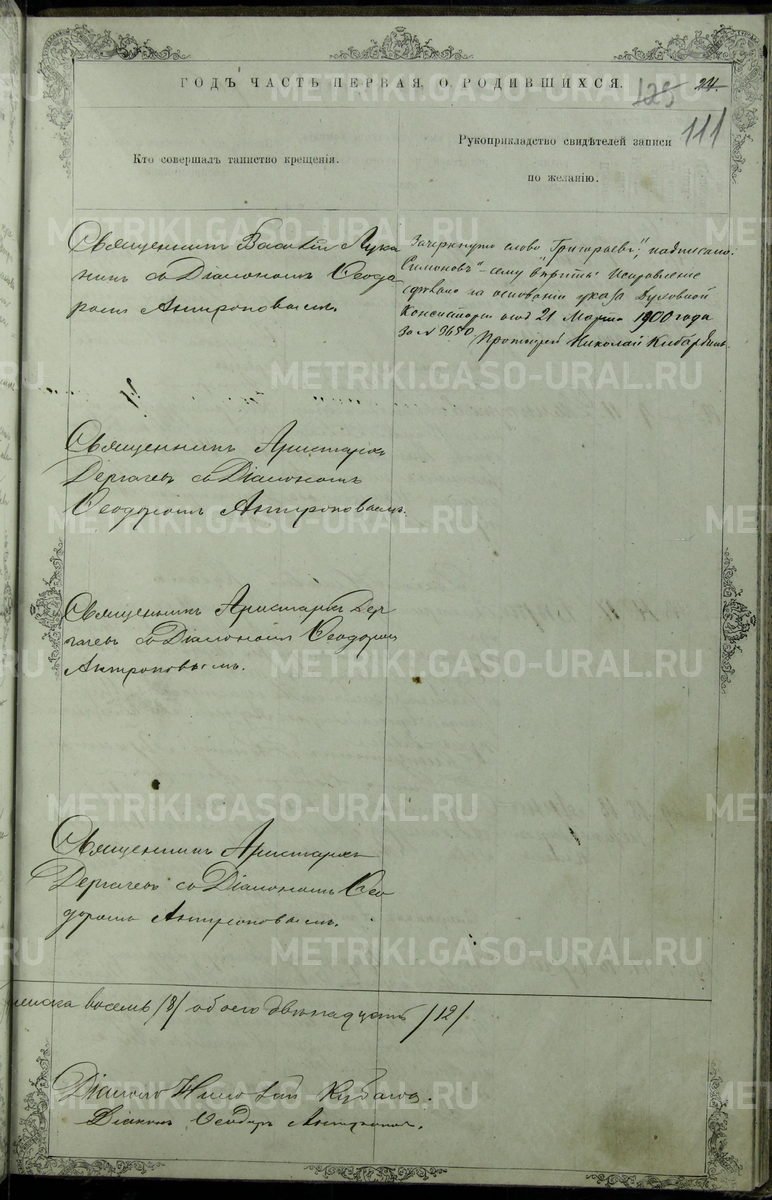 ГОДЪ ЧАСТЬ ПЕРВАЯ, О РОДИВШИХСЯ.
125 24
111
Кто совершалъ таинство крещенія.
Рукоприкладство свидѣтелей записи
по желанію.
Священникъ Василій Лука
нинъ съ Діакономъ Ѳеодо
ромъ Антроповымъ.
Зачеркнуто слово "Григорьевъ", надписано:
"Симоновъ" - сему вѣрить: Исправленіе
сдѣлано на основаніи указа Духовной
Консисторіи отъ 21 Марта 1900 года
за № 3650 Протоіерей Николай
Священникъ Аристархъ
Дергачевъ съ Діакономъ
Ѳеодоромъ Антроповымъ.
Священникъ Аристархъ Дер
гачевъ съ Діакономъ Ѳеодоромъ
Антроповымъ.
Священникъ Аристархъ
Дергачевъ съ Діакономъ Ѳео
доромъ Антроповымъ.
женска восемь /8/ обоего двѣнадцать /12/
Діаконъ Ѳеодоръ Антроповъ.
METRIKI.GASO-URAL.RU